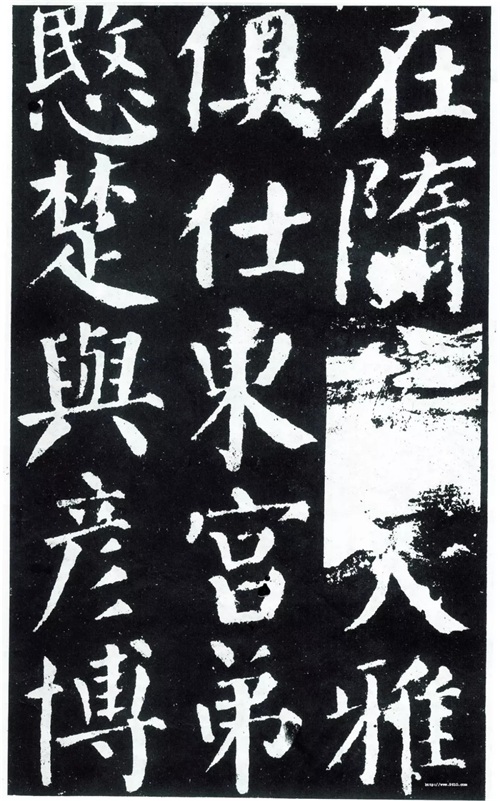 在隋雅
俱仕東宮弟
愍楚與彦博